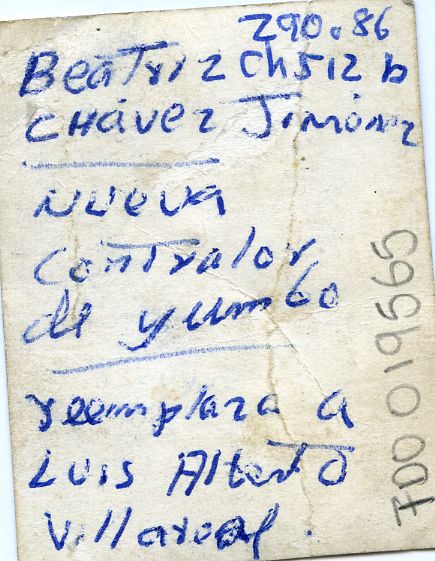 290.86
Beatriz Ch512b
Chávez Jiménez
Nueva
Contralor
de yumbo
reemplaza a
Luis Alberto
Villareal.
FDO 019565